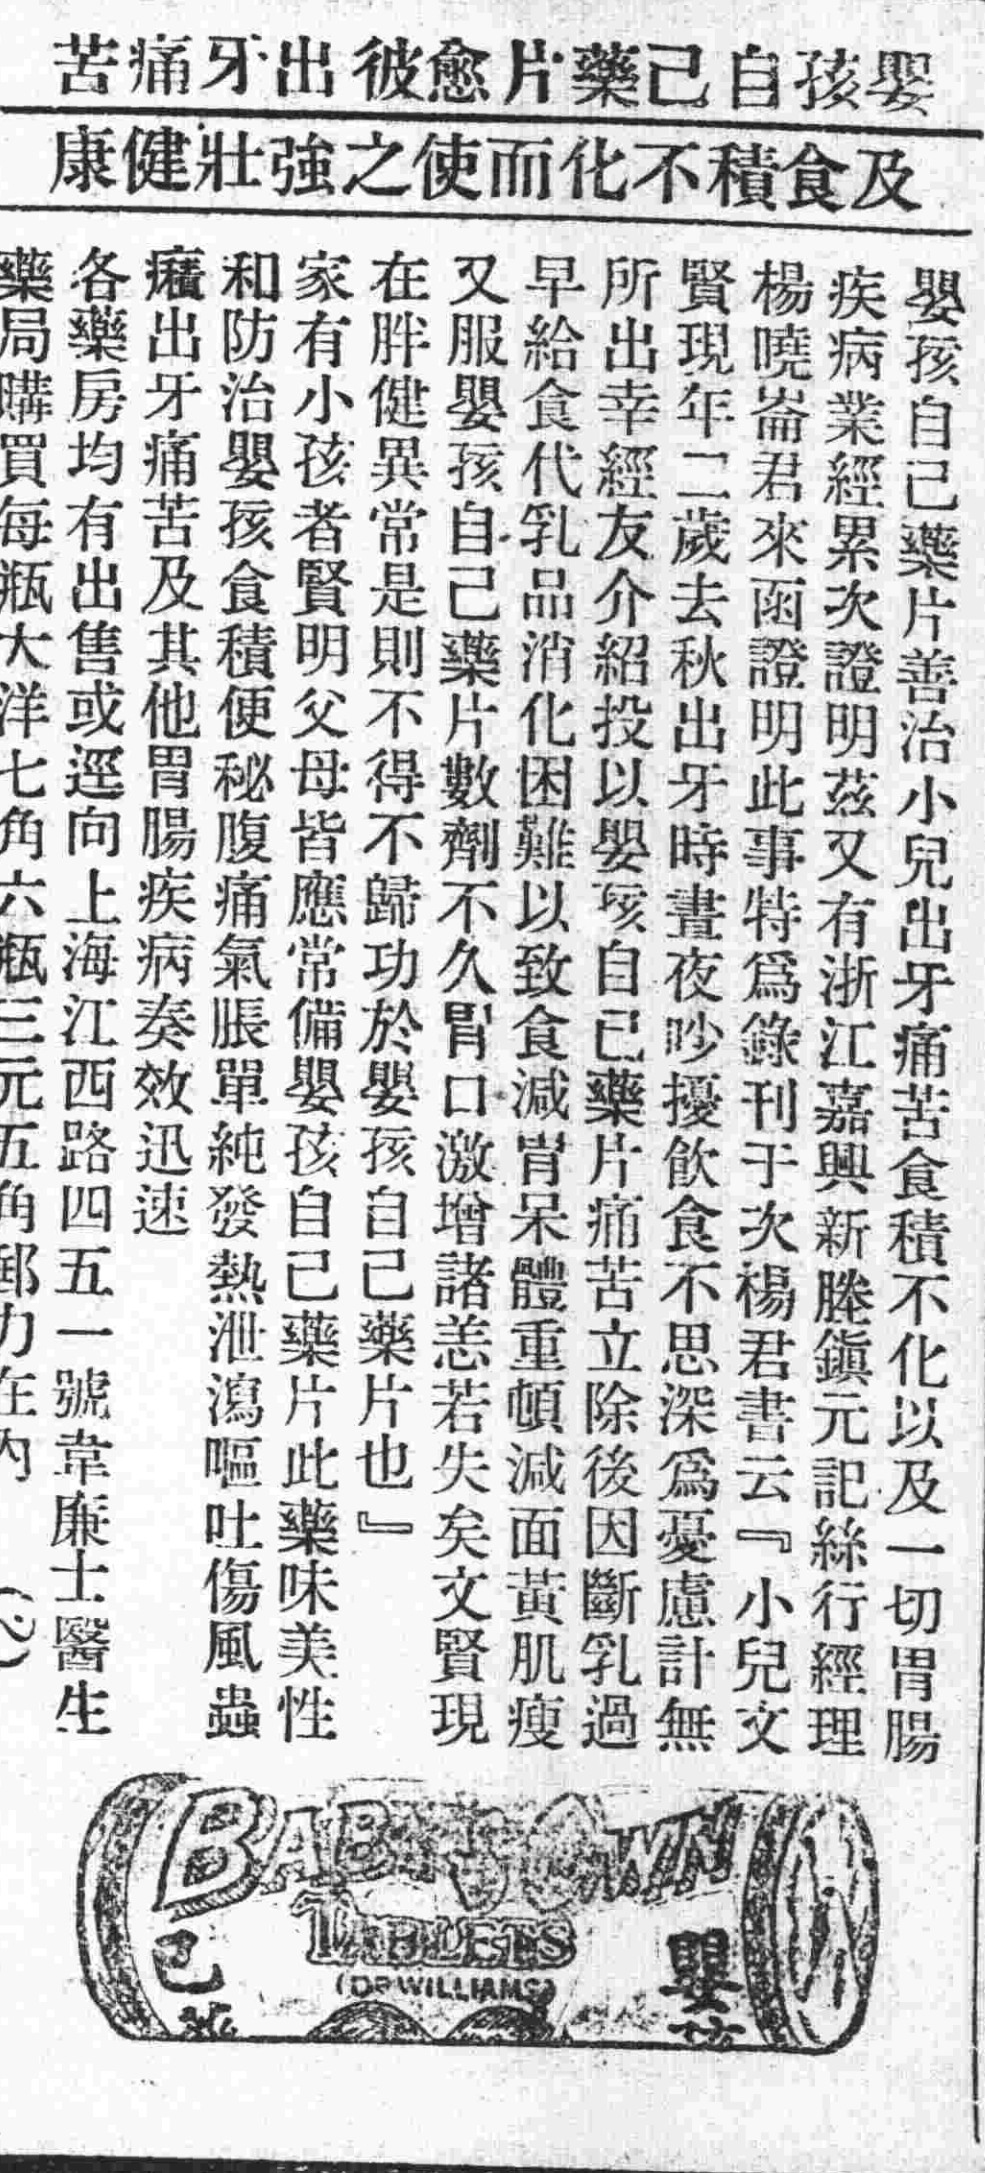 嬰孩自己藥片愈彼出牙痛苦
及食積不化而使之強壯健康
嬰孩自己藥片善治小兒出牙痛苦食積不化以及一切胃腸
疾病業經累次證明茲又有浙江嘉興新塍鎭元記絲行經理
楊曉崙君來函證明此事特爲錄刊于次楊君書云『小兒文
賢現年二歲去秋出牙時晝夜吵擾飮食不思深爲憂慮計無
所出幸經友介紹投以嬰孩自己藥片痛苦立除後因斷乳過
早給食代乳品消化困難以致食減胃呆體重頓減面黃肌瘦
又服嬰孩自己藥片數劑不久胃口激增諸恙若失矣文賢現
在胖健異常是則不得不歸功於嬰孩自己藥片也』
家有小孩者賢明父母皆應常備嬰孩自己藥片此藥味美性
和防治嬰孩食積便秘腹痛氣脹單純發熱泄瀉嘔吐傷風蟲
癪出牙痛苦及其他胃腸疾病奏效迅速
各藥房均有出售或逕向上海江西路四五一號韋廉士醫生
藥局購買每瓶大洋七角六瓶三元五角郵力在內
BABY'S OWN
TABLETS
(DR WILLIAMS)
嬰孩
己藥